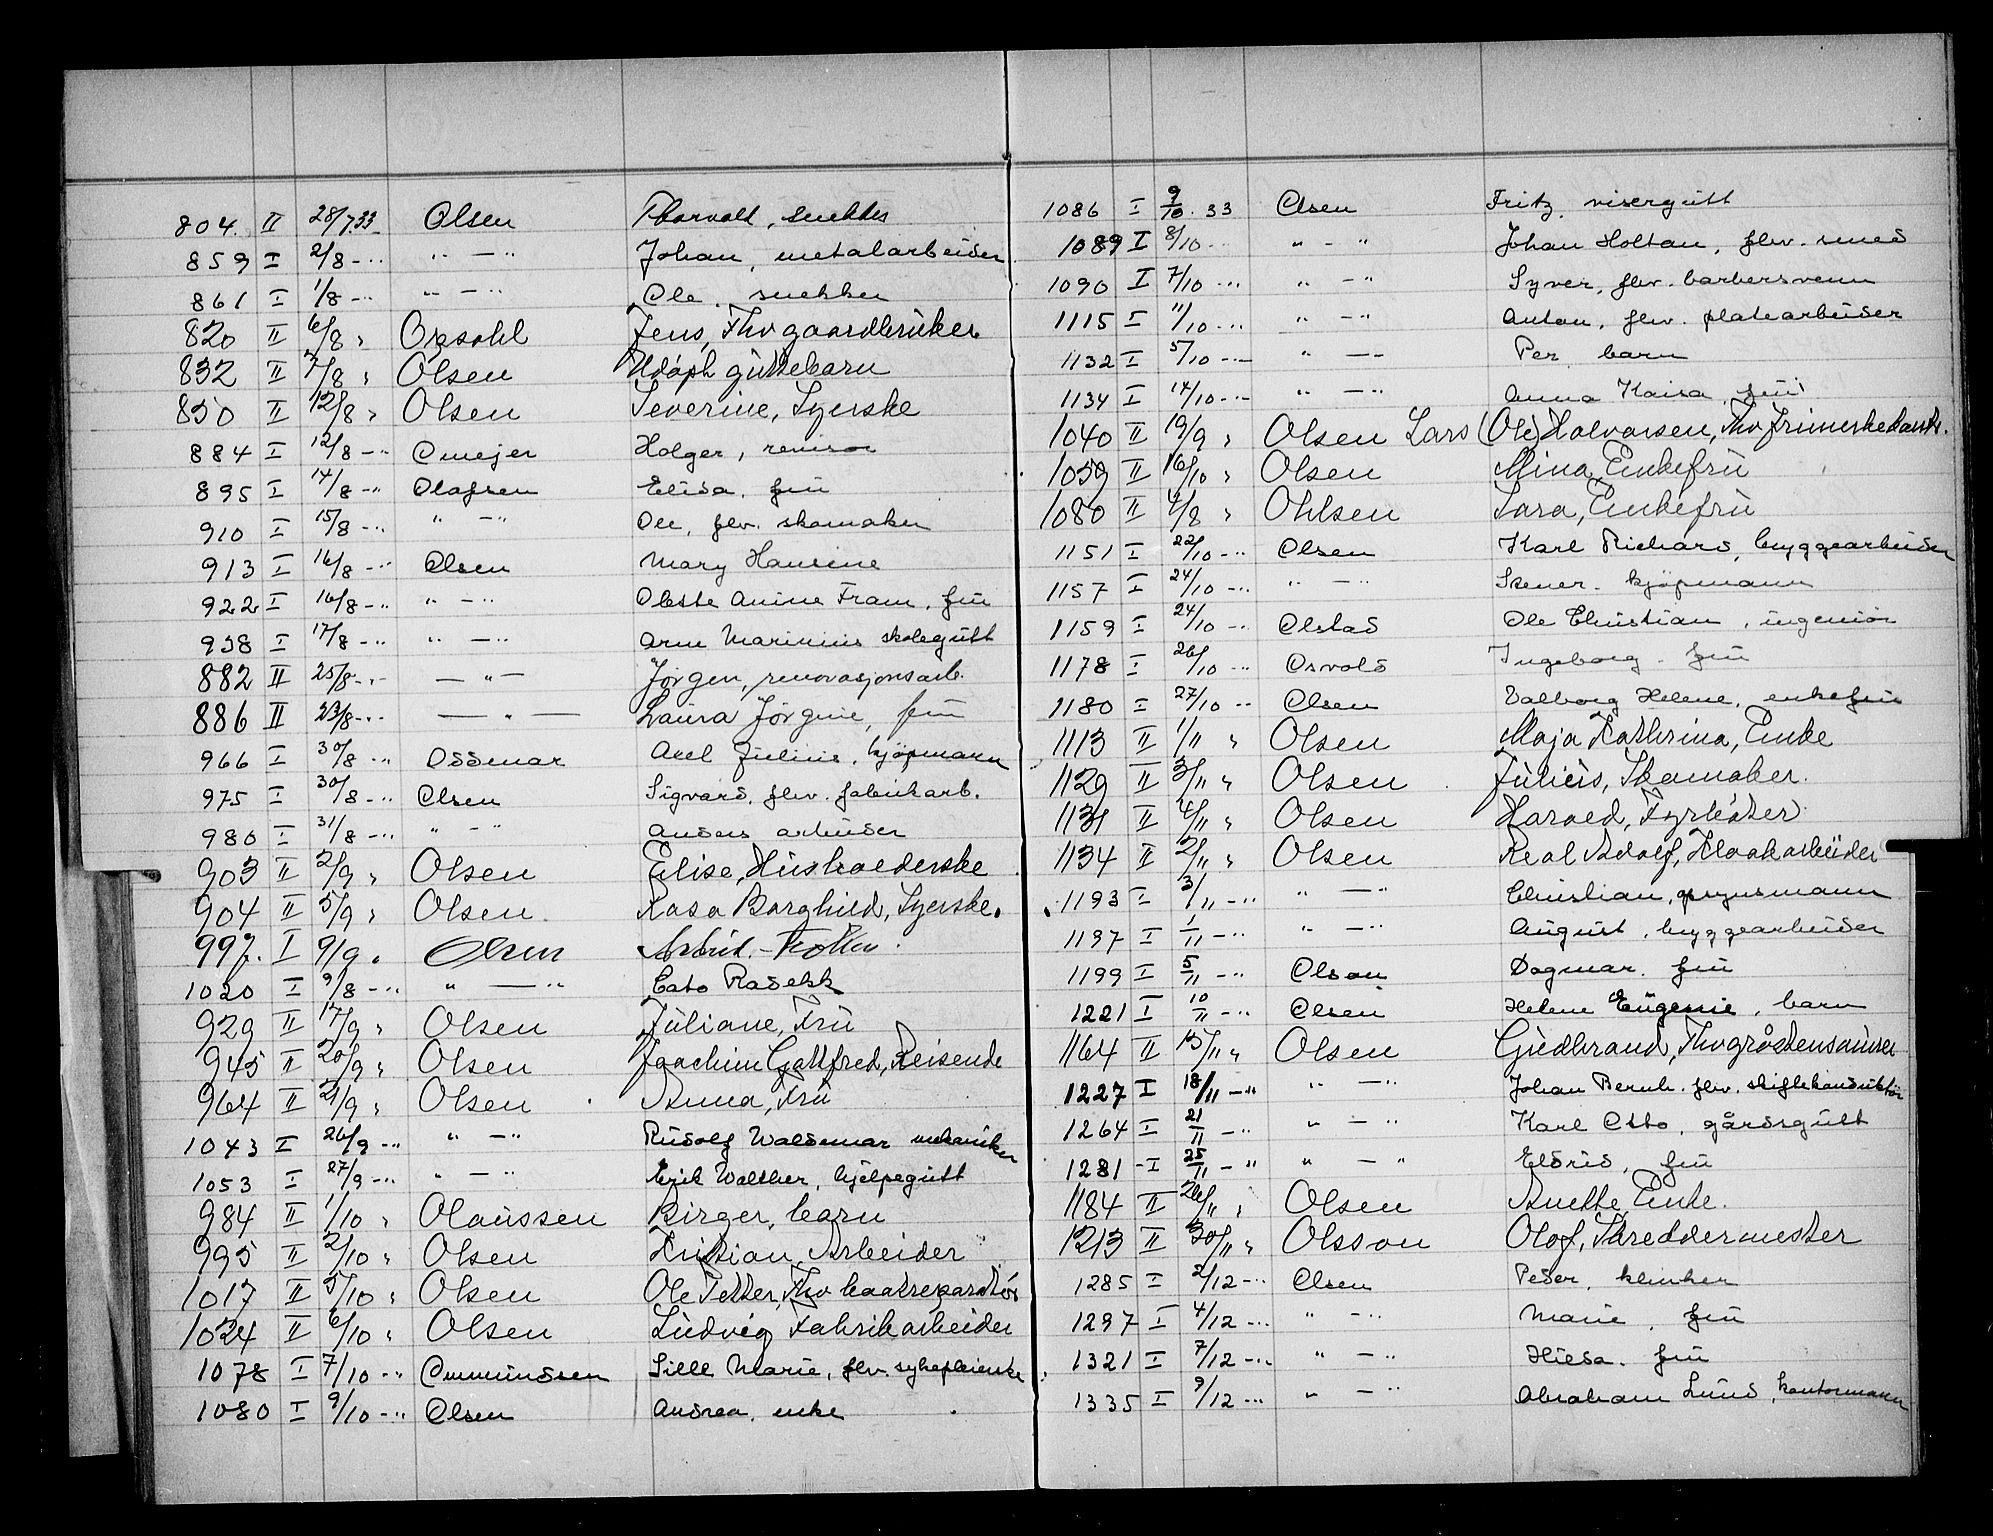 804. II 28/7.33 Olsen Thorvald, snekker
859 I 2/8 -·· ·· — ·· Johan, metalarbeider
861 I 1/8 -·· ·· — ·· Ole, snekker
820 II 6/8 " Opsahl Jens, Fhv gaardbruker
832 II 7/8 " Olsen guttebarn
850 II 12/8 " Olsen Severine, Syerske
884 I 12/8 -·· Omejer Holger, revisor
895 I 14/8 -·· Olafsen Elisa, fru
910 I 15/8 -·· " — " Ole, fhv. skomaker
913 I 16/8 -·· Olsen Mary Hansine
922 I 16/8 -·· " — " Anine Fram, fru
938 I 17/8 -·· " — " Arne Marinius skolegutt
882 II 25/8 -·- — " — Jørgen, renovasjonsarb.
886 II 23/8 -·· — " — Laura Jørgine, fru
966 I 30/8 -·· Oddmar Axel Julius, kjøpmann
975 I 30/8 -·· Olsen Sigvard, fhv. fabrikarb.
980 I 31/8 -·· " — " Anders arbeider
903 II 2/9 " Olsen Elise, Husholderske
904 II 5/9 " Olsen Rosa Borghild, Syerske.
997. I 9/9 " Olsen Astrid
1020 I 9/8 -·· " — " Cato Radekk
929 II 17/9 " Olsen Juliane, Fru
945 II 20/9 " Olsen Joachim Gottfred, Reisende
964 II 21/9 " Olsen Anna, Fru
1043 I 26/9 -·· " — " Rudolf Waldemar mekaniker
1053 I 27/9 -·· " — " Erik Walther, hjelpegutt
984 II 1/10 " Olaussen Birger, barn
995 II 2/10 " Olsen Kristian, Arbeider
1017 II 5/10 " Olsen Ole Petter, Fhv baatreparatør
1024 II 6/10 " Olsen Ludvig, Fabrikarbeider
1078 I 7/10 -·· Ommundsen Sille Marie, fhv. sykepleierske
1080 I 9/10 -·· Olsen Andrea, enke
1086 I 9/10. 33 Olsen Fritz, visergutt
1089 I 8/10 -·· " — " Johan Holtan, fhv. smed
1090 I 7/10 -·· " — " Syver, fhv. barbersvenn
1115 I 11/10 -·· " — " Anton, fhv. platearbeider
1132 I 5/10 -·- " — " Per barn
1134 I 14/10 -·- " — " Anna Kaisa, fru
1040 II 19/9 " Olsen Lars (Ole) Halvorsen, Fhv
1059 II 16/10 " Olsen Mina, Enkefru
1080 II 4/8 " Ohlsen Sara, Enkefru
1151 I 22/10 -·· Olsen Karl Richard, bryggearbeider
1157 I 24/10 -·· " — " kjøpmann
1159 I 24/10 -·· Olstad Ole Christian, ingeniør
1178 I 26/10 -·· Osvold Ingeborg, fru
1180 I 27/10 -·· Olsen Valborg Helene, enkefru
1113 II 1/11 " Olsen Maja Kathrina, Enke
1129 II 3/11 " Olsen Julius, Skomaker.
1131 II 4/11 " Olsen Harald, Fyrbøter
1134 II 2/11 " Olsen Adolf, Kloakarbeider
1193 I 3/11 -·· " — " Christian, grynsmann
1197 I 1/11 -·· " — " August, bryggearbeider
1199 I 5/11 -·· Olsen Dagmar, fru
1221 I 10/11 -·· Olsen Helene Eugenie, barn
1164 II 15/11 " Olsen Gudbrand, Fhv
1227 I 18/11 -·· " — " Johan Bernh. fhv. skiftekonduktør
1264 I 21/11 -·· " — " Karl Otto, gårdsgutt
1281 - I 25/11 -·· " — " Eldrid, fru
1184 II 26/11 " Olsen Anette, Enke.
1213 II 30/11 " Olsson Olof, Skreddermester
1285 I 2/12 -·· Olsen Peder, klinker
1297 I 4/12 -·· " — " Marie, fru
1321 I 7/12 -·· " — " Hilda, fru
1335 I 9/12 -·· " — " Abraham Lund, kontormann